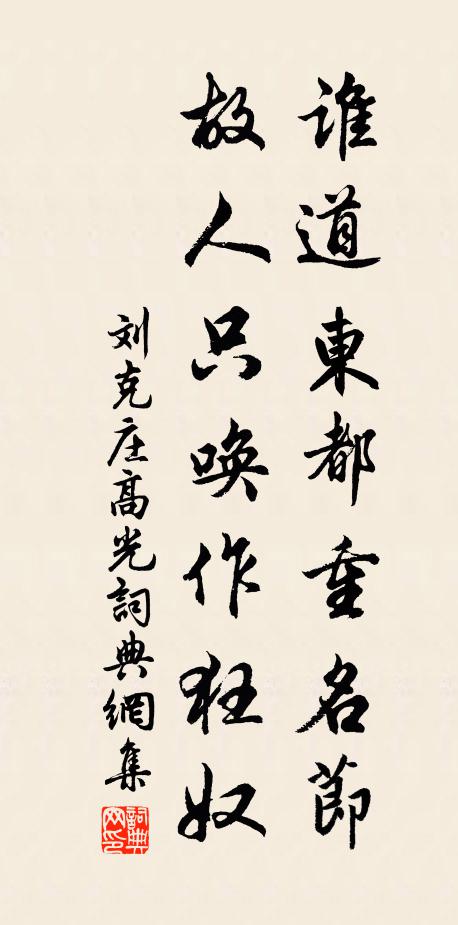 誰道東都重名節
故人只唤作狂奴
刘克庄高光詞典網集
詞典网印